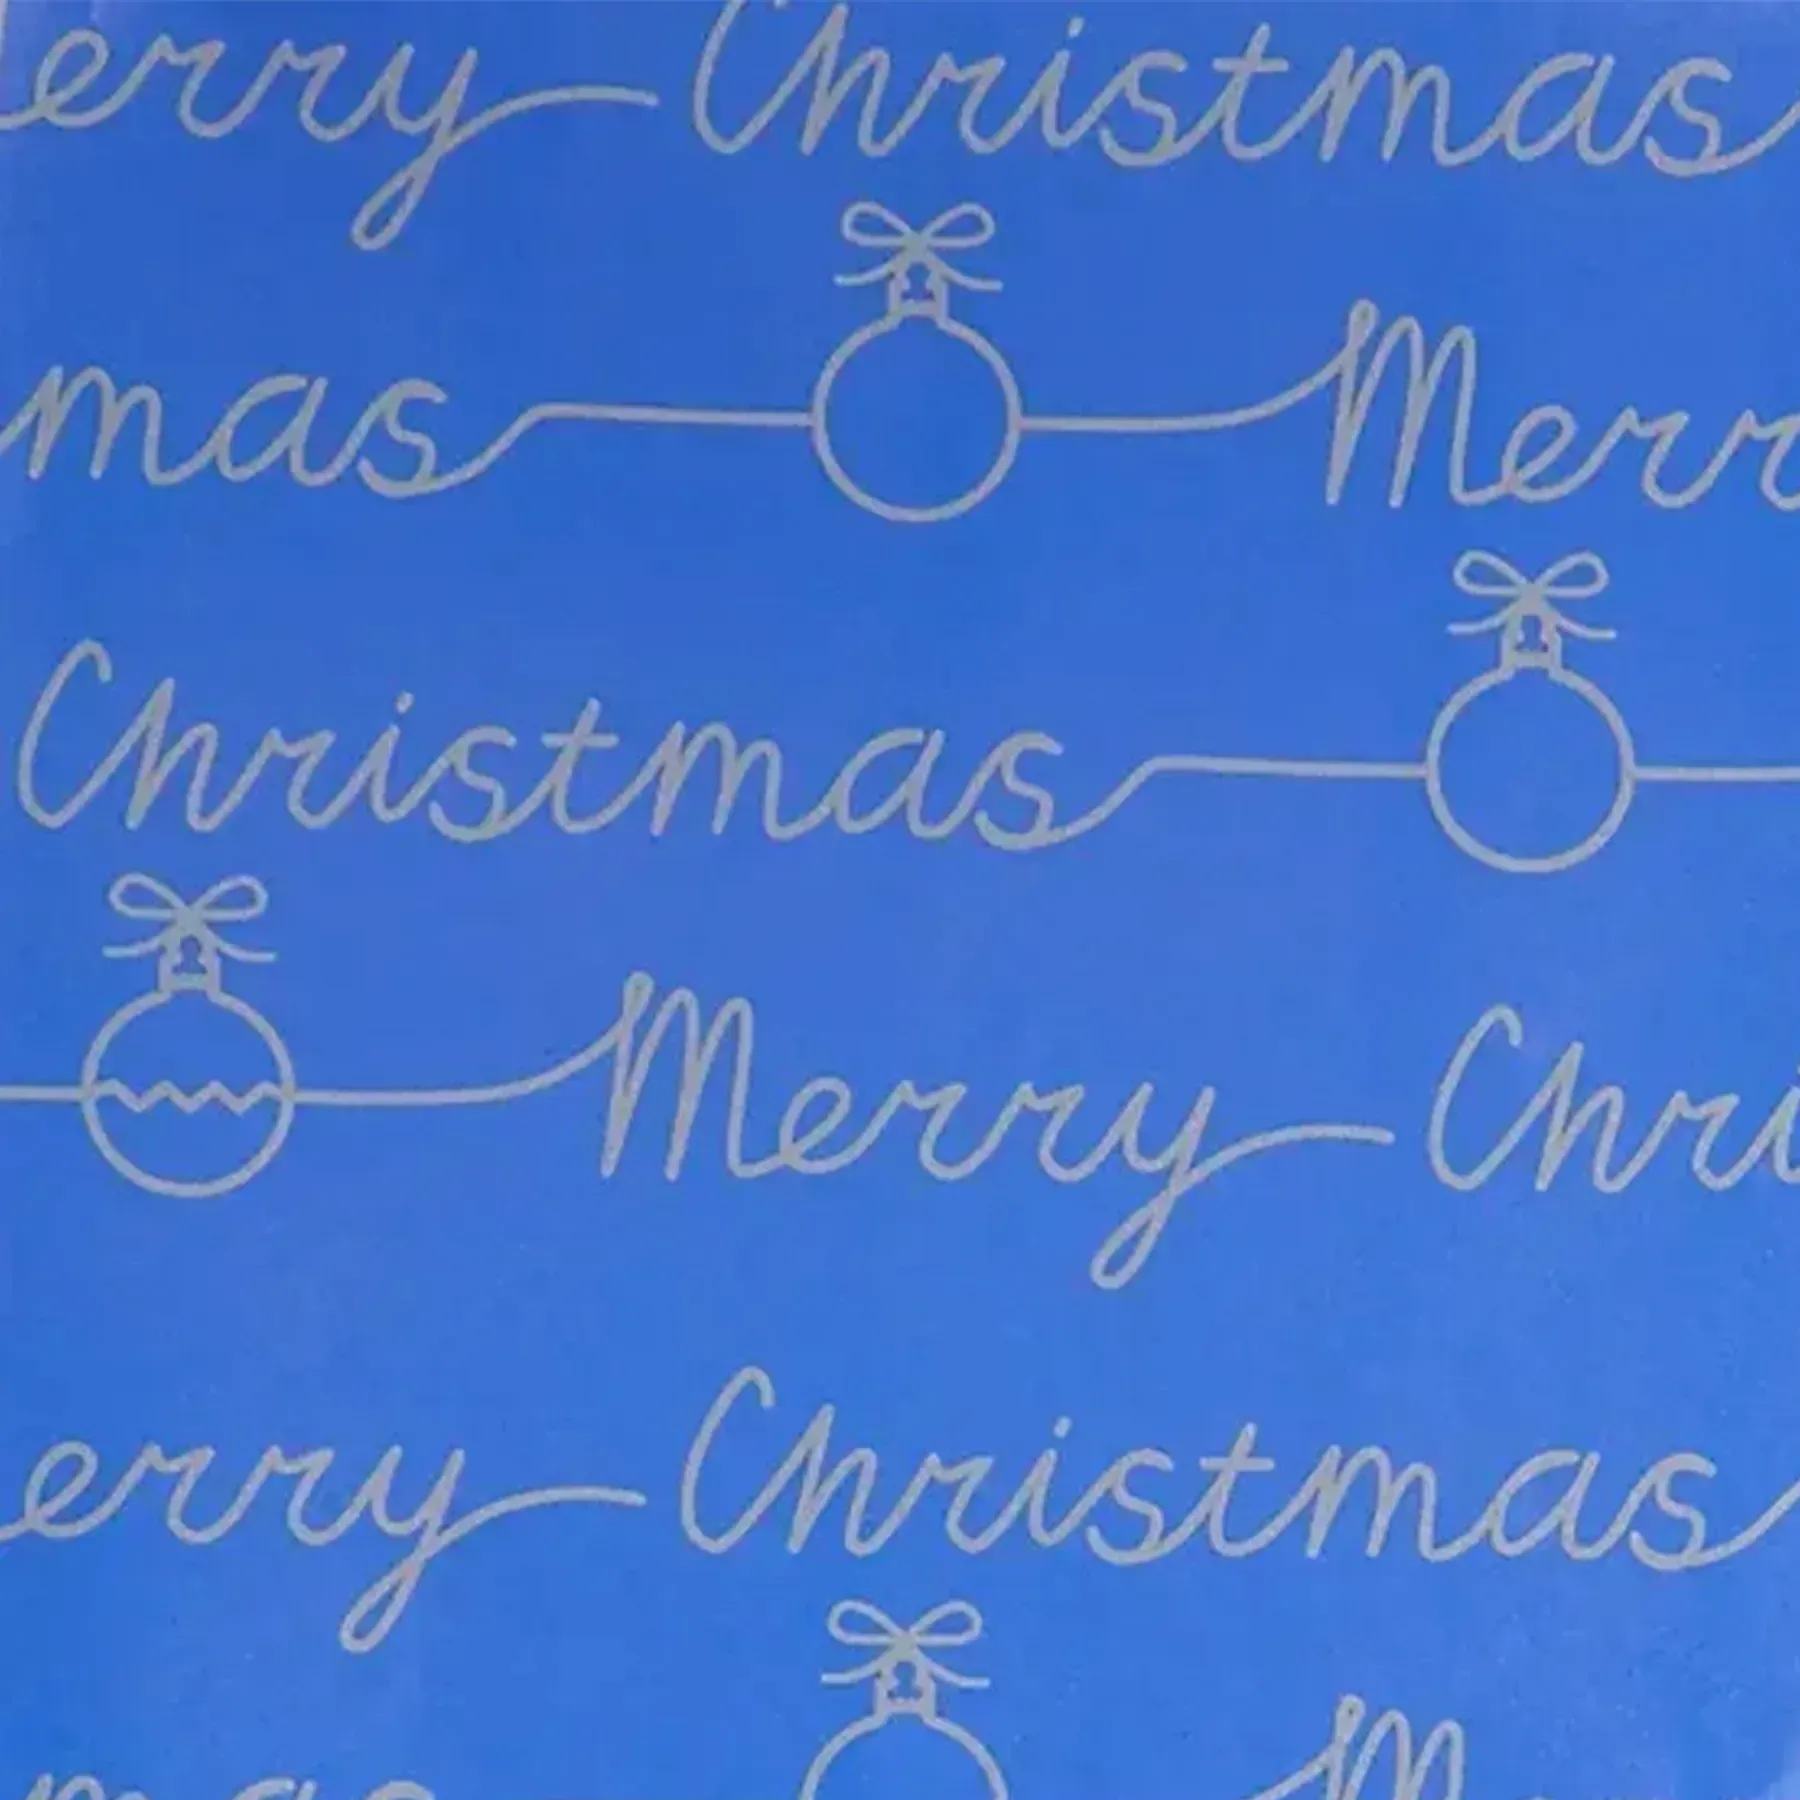 erry Christmas
mas Merr
Christmas
Merry Chri
erry Christmas
mas M